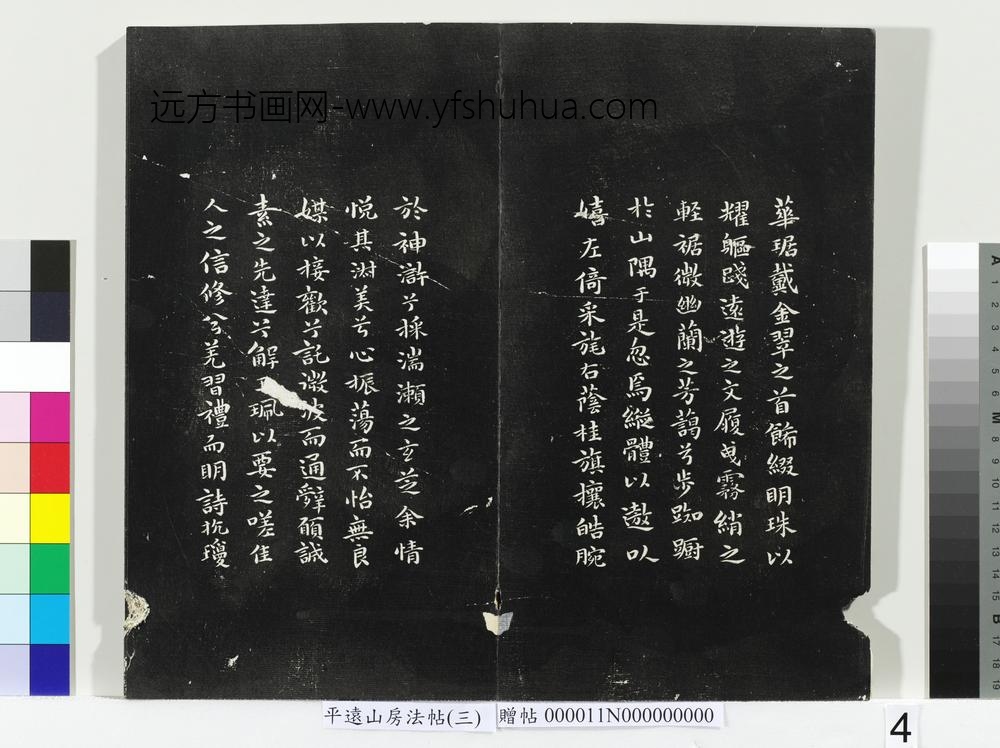 远方书画网-www.yfshuhua.com
華琚戴金翠之首飾綴明珠以
耀軀踐遠遊之文履曳霧綃之
輕裾微幽蘭之芳藹兮步踟躕
於山隅于是忽焉縱體以遨以
嬉左倚采旄右蔭桂旗攘皓腕
於神滸兮採湍瀨之玄芝余情
悅其淑美兮心振蕩而不怡無良
媒以接歡兮託微波而通辭願誠
素之先達兮解珮以要之嗟佳
人之信修兮羌習禮而明詩抗瓊
平遠山房法帖(三) 贈帖 000011N000000000
4
A 1 2 3 4 5 6 M 8 9 10 11 12 13 14 15 B 17 18 19